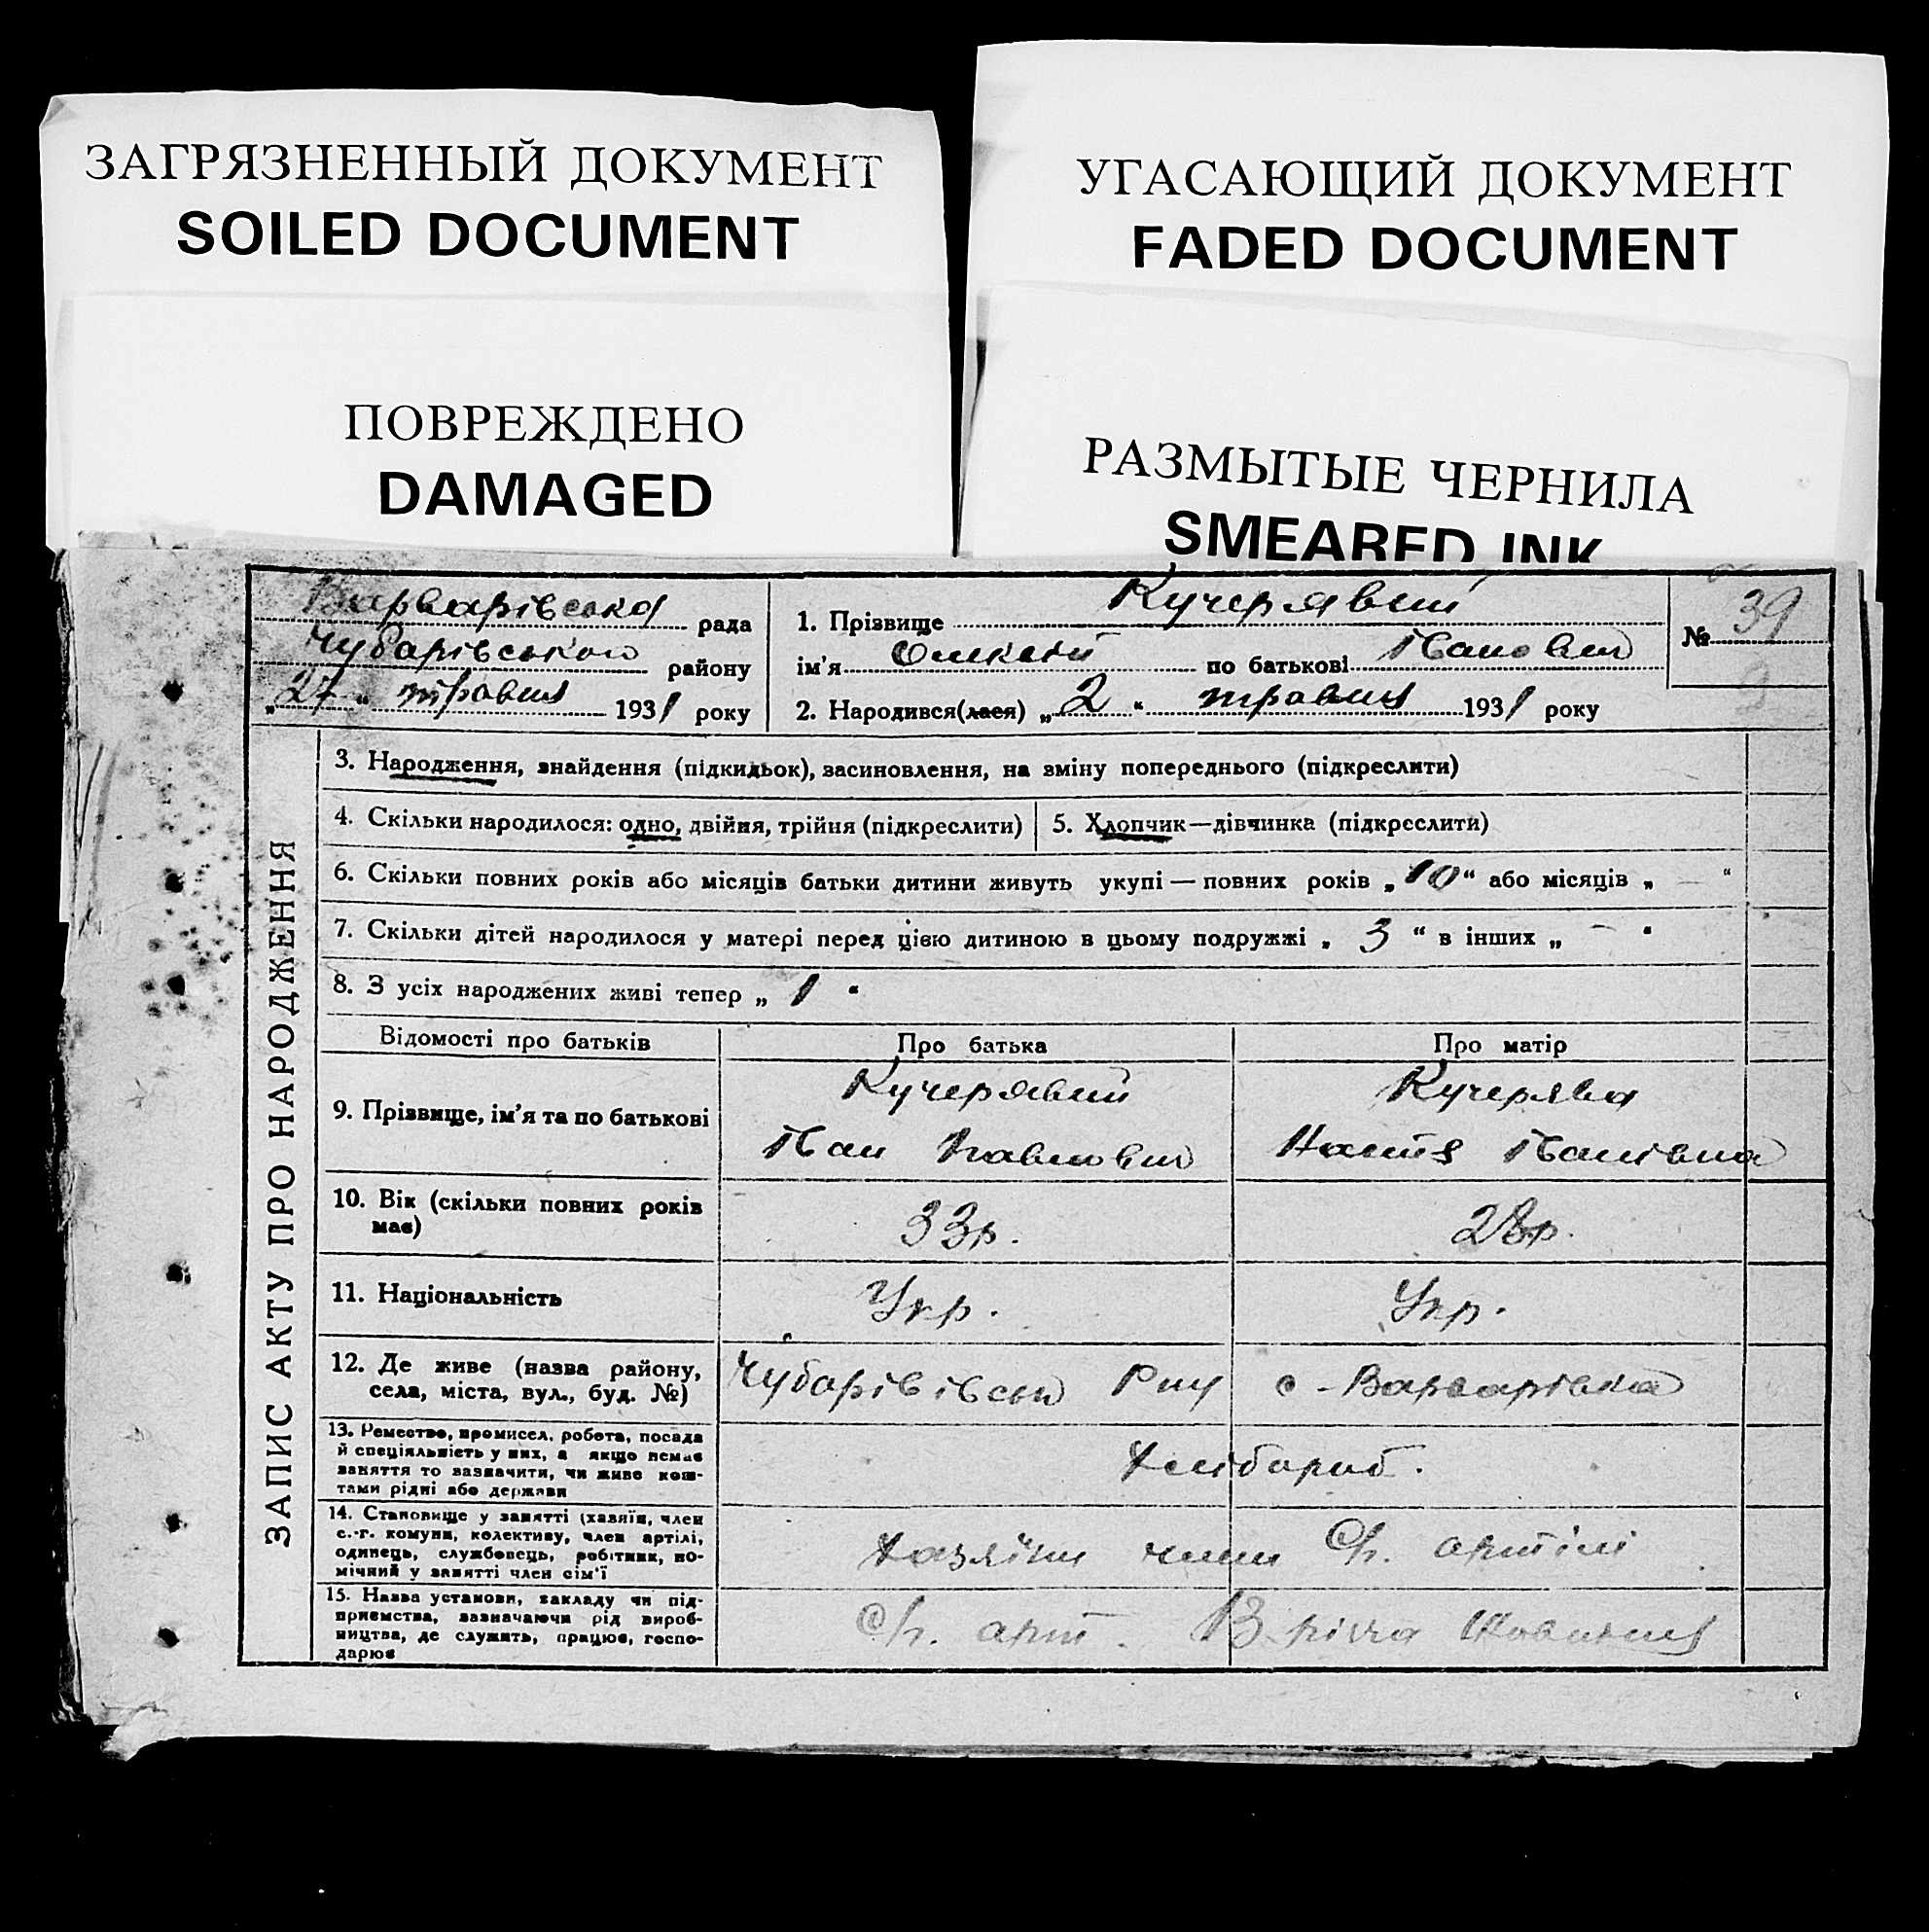 ЗАГРЯЗНЕННЫЙ ДОКУМЕНТ
SOILED DOCUMENT
ПОВРЕЖДЕНО
DAMAGED
УГАСАЮЩИЙ ДОКУМЕНТ
FADED DOCUMENT
РАЗМЫТЫЕ ЧЕРНИЛА
SMEARED INK
Варварівська рада
Чубарівського району
„27“ травня 1931 року
1. Прізвище Кучерявий
ім'я Олексій по батькові Іванович
2. Народився(лася) „2“ травня 1931 року
№ 39
ЗАПИС АКТУ ПРО НАРОДЖЕННЯ
3. Народження, знайдення (підкидьок), засиновлення, на зміну попереднього (підкреслити)
4. Скільки народилося: одно, двійня, трійня (підкреслити)
5. Хлопчик—дівчинка (підкреслити)
6. Скільки повних років або місяців батьки дитини живуть укупі — повних років „10“ або місяців „ — “
7. Скільки дітей народилося у матері перед цією дитиною в цьому подружжі „ 3 “ в інших „ — “
8. З усіх народжених живі тепер „ 1 “
Відомості про батьків
Про батька
Про матір
9. Прізвище, ім'я та по батькові
Кучерявий
Іван Павлович
Кучерява
Настя Іванівна
10. Вік (скільки повних років
має)
33р.
28р.
11. Національність
Укр.
Укр.
12. Де живе (назва району,
села, міста, вул., буд. №)
с. Варварівка
13. Ремество, промисел, робота, посада
й спеціяльність у них, а якщо немає
заняття то зазначити, чи живе кош-
тами рідні або держави
Хлібороб.
14. Становище у занятті (хазяїн, член
с.-г. комуни, колективу, член артілі,
одинець, службовець, робітник, по-
мічний у занятті член сім'ї
хазяїни члени Сг. артілі
15. Назва установи, закладу чи під-
приємства, зазначаючи рід вироб-
ництва, де служить, працює, госпо-
дарює
Сг. арт. В річчя Жовтня